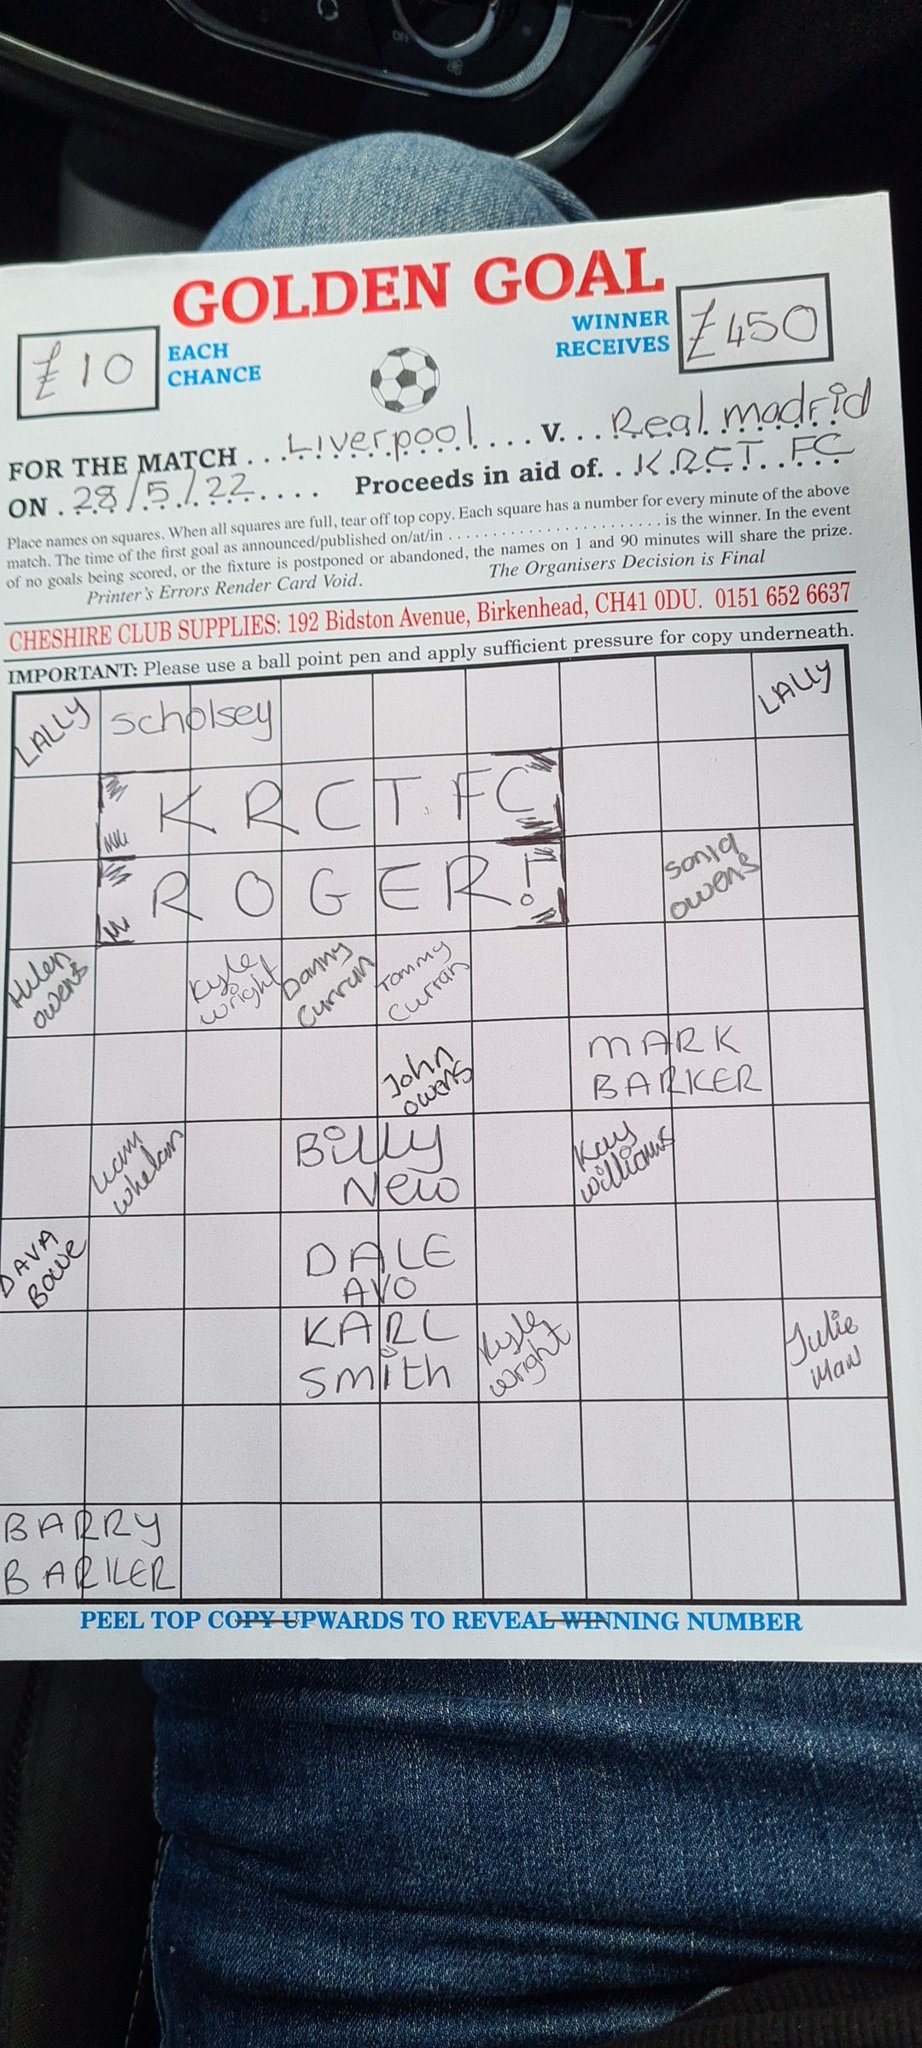 GOLDEN GOAL
£10
EACH
CHANCE
WINNER
RECEIVES
£450
FOR THE MATCH ... Liverpool .... V. .. Real madrid
ON . 28/5/22 .... Proceeds in aid of. . KRCT FC
Place names on squares. When all squares are full, tear off top copy. Each square has a number for every minute of the above
match. The time of the first goal as announced/published on/at/in ........................ is the winner. In the event
of no goals being scored, or the fixture is postponed or abandoned, the names on 1 and 90 minutes will share the prize.
Printer's Errors Render Card Void. The Organisers Decision is Final
CHESHIRE CLUB SUPPLIES: 192 Bidston Avenue, Birkenhead, CH41 0DU. 0151 652 6637
IMPORTANT: Please use a ball point pen and apply sufficient pressure for copy underneath.
LALLY
Scholsey
LALLY
KRCT FC
ROGER!
Sonia
owens
Helen
owens
Kyle
wright
Danny
Curran
Tommy
Curran
John
owens
MARK
BARKER
Liam
whelan
Billy
New
Kay
williams
DAVA
BOWE
DALE
AVO
KARL
Smith
Kyle
wright
Julie
Maw
BARRY
BARKER
PEEL TOP COPY UPWARDS TO REVEAL WINNING NUMBER